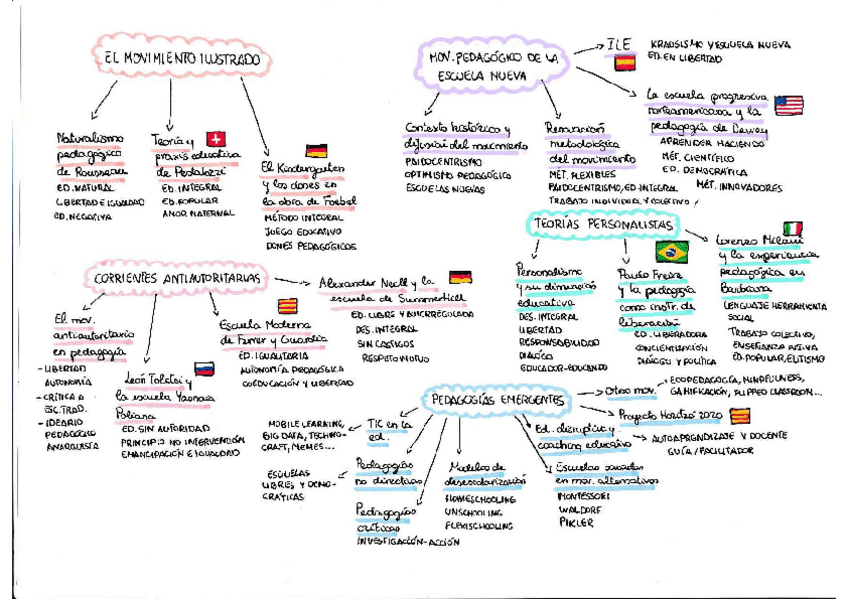 EL MOVIMIENTO ILUSTRADO
Naturalismo
pedagógico
de Rousseau
ED. NATURAL
LIBERTAD E IGUALDAD
ED. NEGATIVA
Teoría y
praxis educativa
de Pestalozzi
ED. INTEGRAL
ED. POPULAR
AMOR MATERNAL
El Kindergarten
y los dones en
la obra de Froebel
MÉTODO INTEGRAL
JUEGO EDUCATIVO
DONES PEDAGÓGICOS
MOV. PEDAGÓGICO DE LA
ESCUELA NUEVA
ILE
KRAUSISMO Y ESCUELA NUEVA
ED. EN LIBERTAD
Contexto histórico y
difusión del movimiento
PAIDOCENTRISMO
OPTIMISMO PEDAGÓGICO
ESCUELAS NUEVAS
Renovación
metodológica
del movimiento
MÉT. FLEXIBLES
PAIDOCENTRISMO, ED. INTEGRAL
TRABAJO INDIVIDUAL Y COLECTIVO
La escuela progresiva
norteamericana y la
pedagogía de Dewey
APRENDER HACIENDO
MÉT. CIENTÍFICO
ED. DEMOCRÁTICA
MÉT. INNOVADORES
TEORÍAS PERSONALISTAS
Personalismo
y su dimensión
educativa
DES. INTEGRAL
LIBERTAD
RESPONSABILIDAD
DIÁLOGO
EDUCADOR-EDUCANDO
Paulo Freire
y la pedagogía
como instr. de
liberación
ED. LIBERADORA
CONCIENTIZACIÓN
DIÁLOGO Y POLÍTICA
Lorenzo Milani
y la experiencia
pedagógica en
Barbiana
LENGUAJE HERRAMIENTA
SOCIAL
TRABAJO COLECTIVO,
ENSEÑANZA ACTIVA
ED. POPULAR, ELITISMO
CORRIENTES ANTIAUTORITARIAS
El mov.
antiautoritario
en pedagogía
- LIBERTAD
AUTONOMÍA
- CRÍTICA A
ESC. TRAD.
- IDEARIO
PEDAGÓGICO
ANARQUISTA
León Tolstoi y
la escuela Yasnaia
Poliana
ED. SIN AUTORIDAD
PRINCIPIO NO INTERVENCIÓN
EMANCIPACIÓN E IGUALDAD
Escuela Moderna
de Ferrer y Guardia
ED. IGUALITARIA
AUTONOMÍA PEDAGÓGICA
COEDUCACIÓN Y LIBERTAD
Alexander Neill y la
escuela de Summerhill
ED. LIBRE Y AUTORREGULADA
DES. INTEGRAL
SIN CASTIGOS
RESPETO MUTUO
PEDAGOGÍAS EMERGENTES
TIC en la
ed.
MOBILE LEARNING,
BIG DATA, TECHNO-
CRAFT, MEMES...
Pedagogías
no directivas
ESCUELAS
LIBRES Y DEMO-
CRÁTICAS
Pedagogías
críticas
INVESTIGACIÓN-ACCIÓN
Modelos de
desescolarización
HOMESCHOOLING
UNSCHOOLING
FLEXISCHOOLING
Escuelas basadas
en mov. alternativos
MONTESSORI
WALDORF
PIKLER
Ed. disruptiva y
coaching educativo
Otros mov.
ECOPEDAGOGÍA, MINDFULNESS,
GAMIFICACIÓN, FLIPPED CLASSROOM...
Proyecto Horitzó 2020
AUTOAPRENDIZAJE Y DOCENTE
GUÍA/FACILITADOR